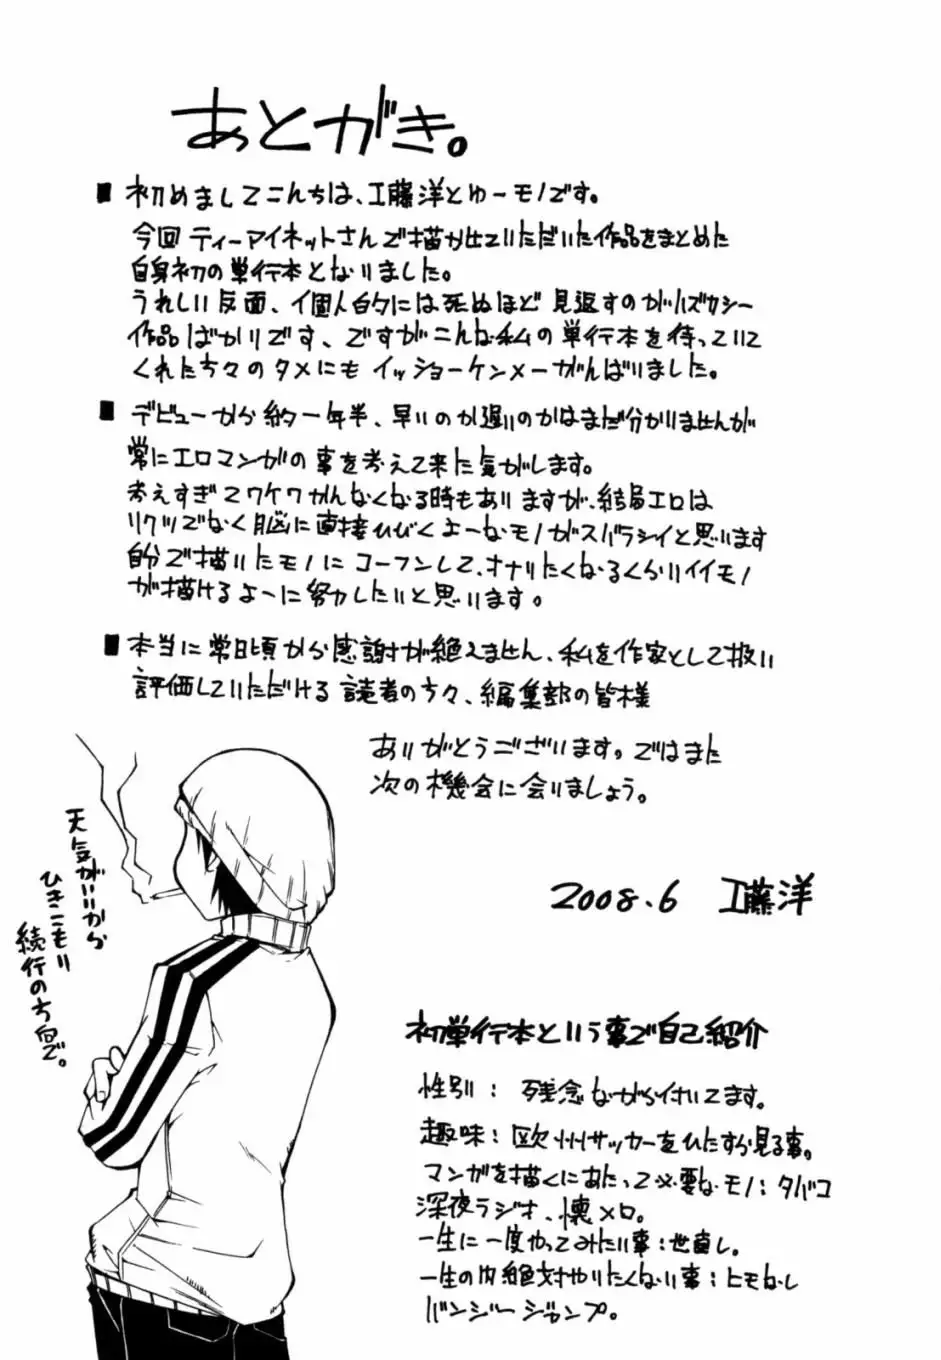 あとがき。
■初めましてこんちは、工藤洋とゆーモノです。
今回 ティーアイネットさんで描かせていただいた作品をまとめた
自身初の単行本となりました。
うれしい反面、個人的には死ぬほど見返すのがハズカシー
作品ばかりです、ですがこんな私の単行本を待っていて
くれた方々のタメにも イッショーケンメーがんばりました。
■デビューから約一年半、早いのか遅いのかはまだ分かりませんが
常にエロマンガの事を考えて来た気がします。
考えすぎてワケワかんなくなる時もありますが、結局エロは
リクツでなく脳に直接ひびくよーなモノがスバラシイと思います
自分で描いたモノにコーフンして、オナりたくなるくらいイイモノ
が描けるよーに努力したいと思います。
■本当に常日頃から感謝が絶えません、私を作家として扱い
評価していただける読者の方々、編集部の皆様
ありがとうございます。ではまた
次の機会に会いましょう。
2008.6 工藤洋
天気がいいから
ひきこもり
続行の方向で。
初単行本という事で自己紹介
性別：残念ながら付いてます。
趣味：欧州サッカーをひたすら見る事。
マンガを描くにあたって必要なモノ：タバコ
深夜ラジオ、懐メロ。
一生に一度やってみたい事：世直し。
一生の内絶対やりたくない事：ヒモなし
バンジージャンプ。